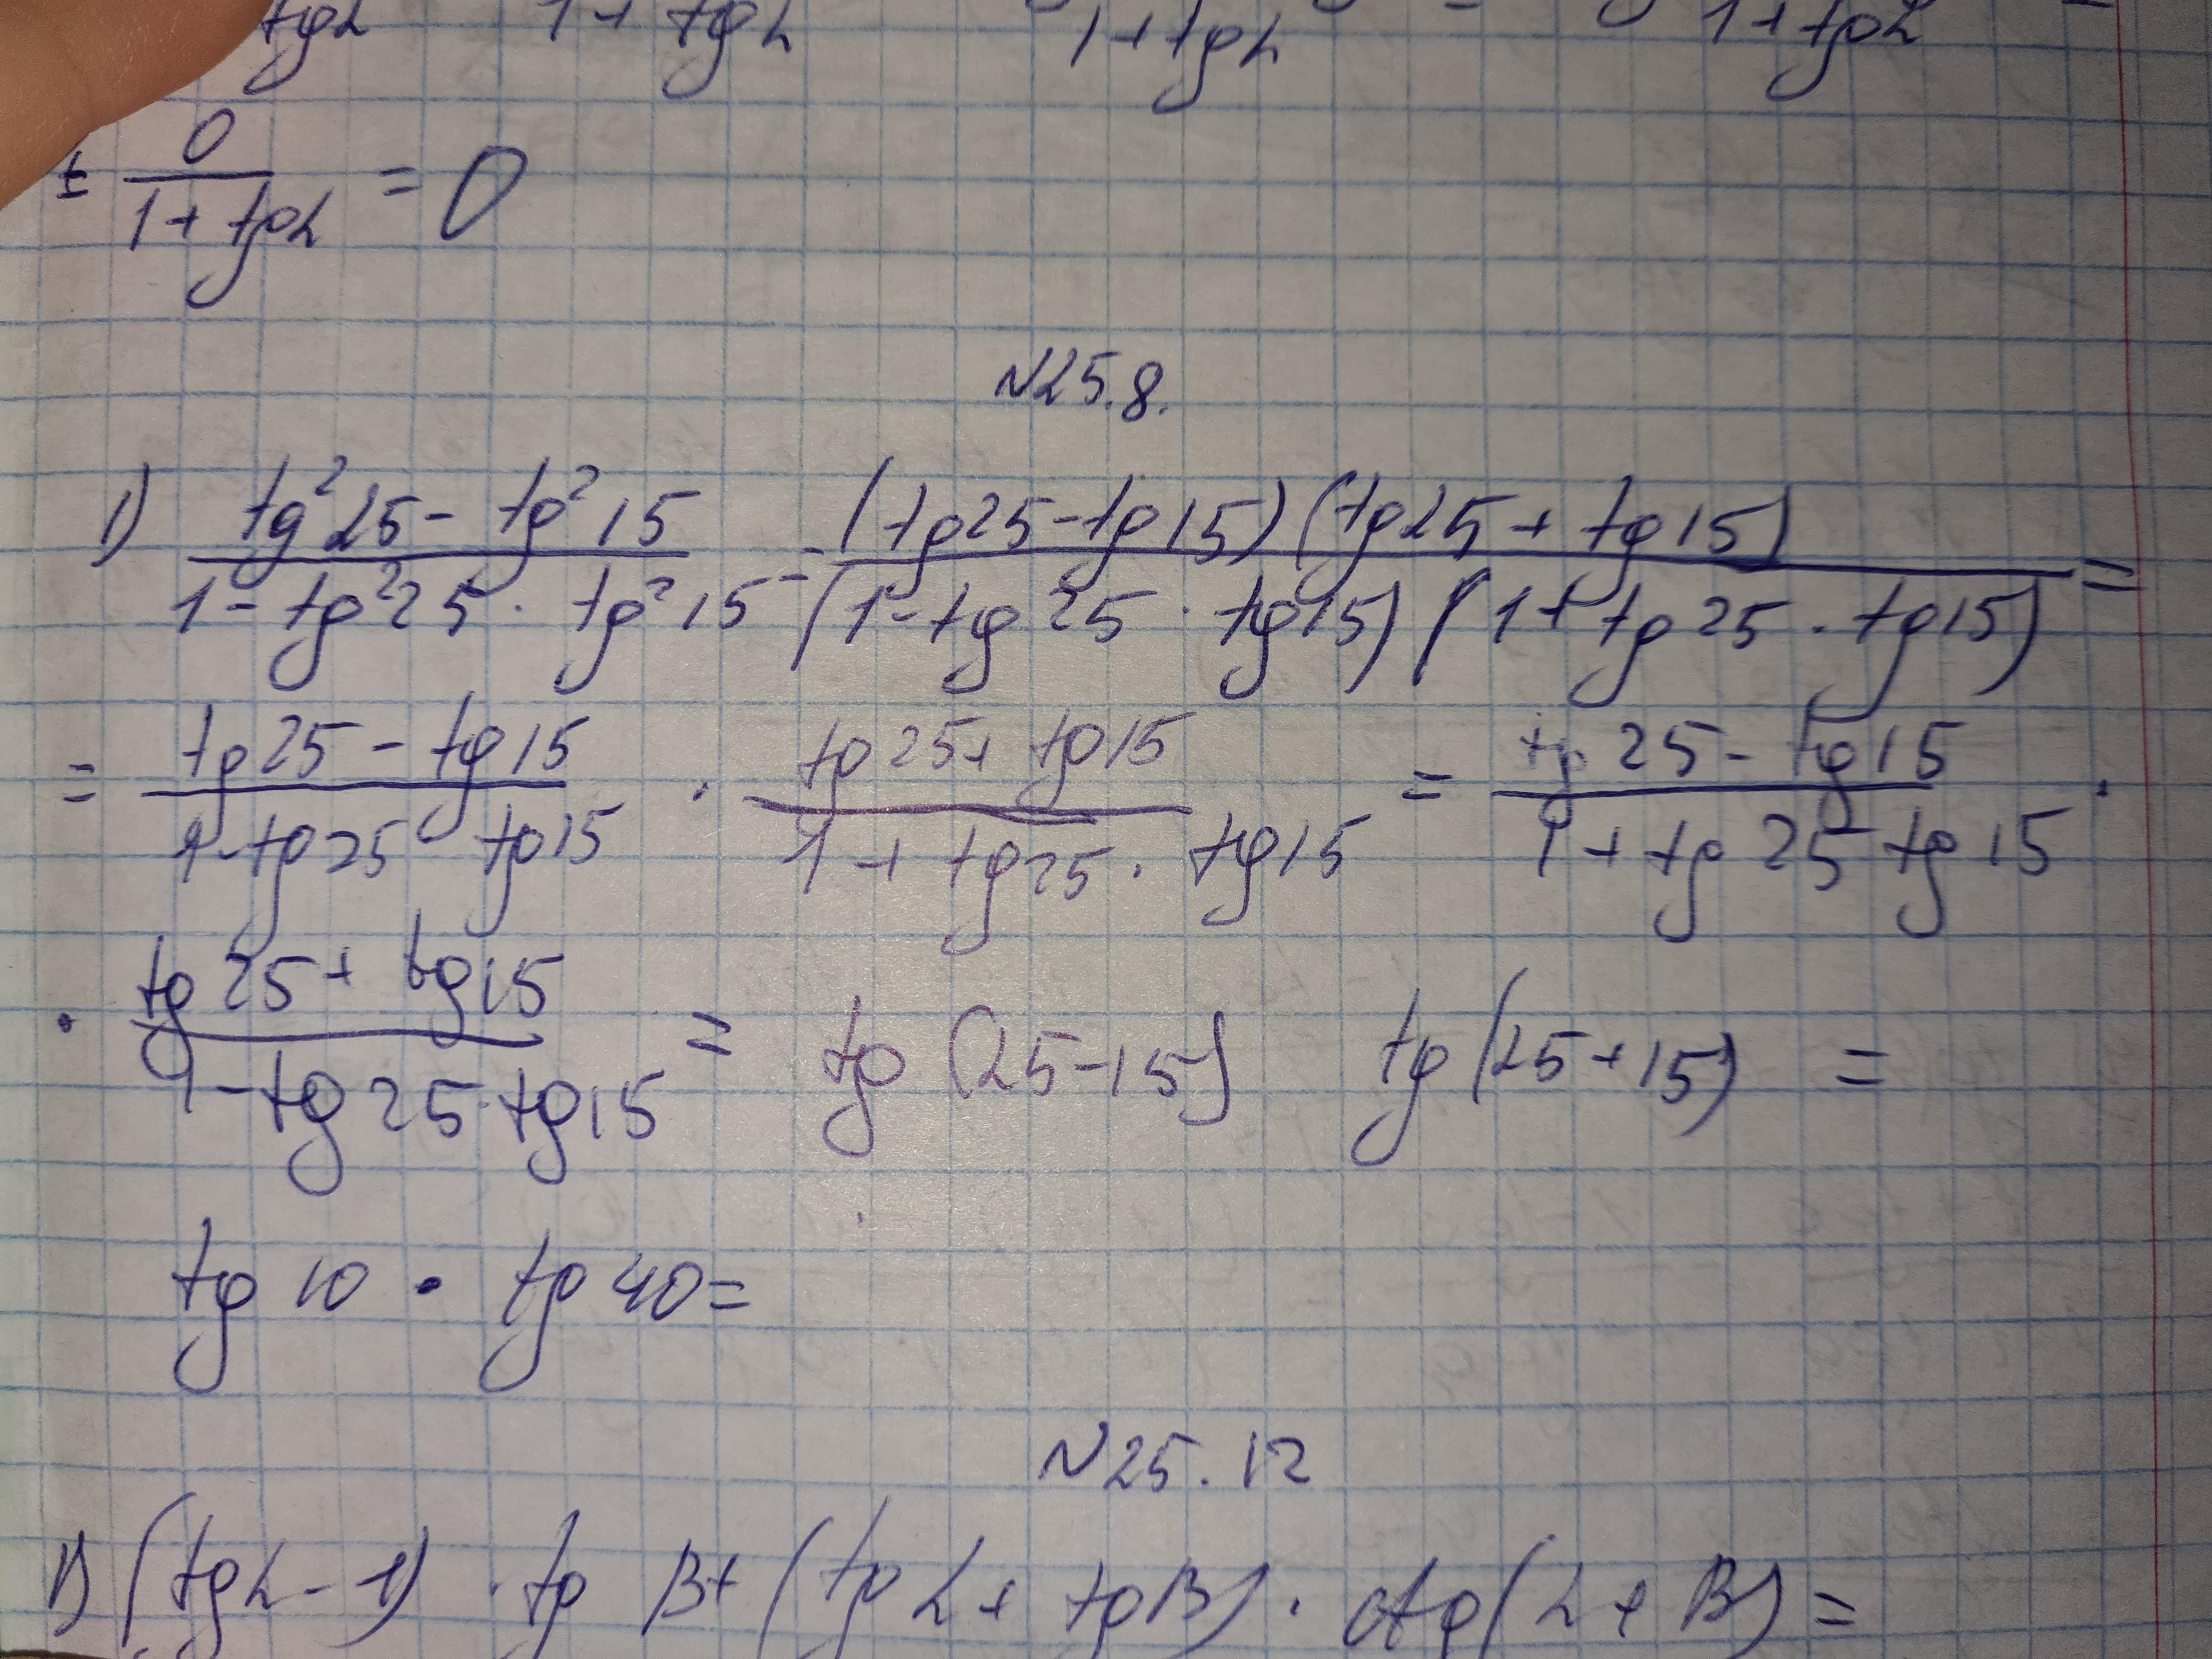 tgα 1+tgα 1+tgα 1+tgα =
= 0/(1+tgα) = 0
№25.8.
1) (tg²25 - tg²15)/(1 - tg²25 · tg²15) = ((tg25 - tg15)(tg25 + tg15))/((1 - tg25 · tg15)(1 + tg25 · tg15)) =
= (tg25 - tg15)/(1 - tg25 tg15) · (tg25 + tg15)/(1 + tg25 · tg15) = (tg25 - tg15)/(1 + tg25 tg15) ·
· (tg25 + tg15)/(1 - tg25 · tg15) = tg(25-15) tg(25+15) =
tg10 · tg40 =
№25.12
1) (tgα - 1) · tg β + (tg α + tgβ) · ctg(α + β) =